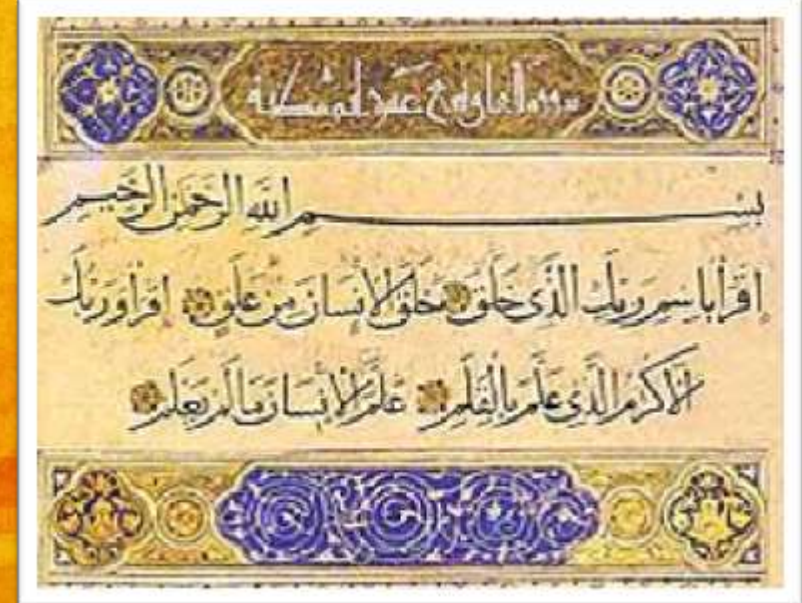 سورة مكية
بِسْمِ اللهِ الرَّحْمٰنِ الرَّحِيمِ
اِقْرَأْ بِاسْمِ رَبِّكَ الَّذِى خَلَقَ خَلَقَ الْاِنْسَانَ مِنْ عَلَقٍ اِقْرَأْ وَرَبُّكَ
الْاَكْرَمُ الَّذِى عَلَّمَ بِالْقَلَمِ عَلَّمَ الْاِنْسَانَ مَا لَمْ يَعْلَمْ